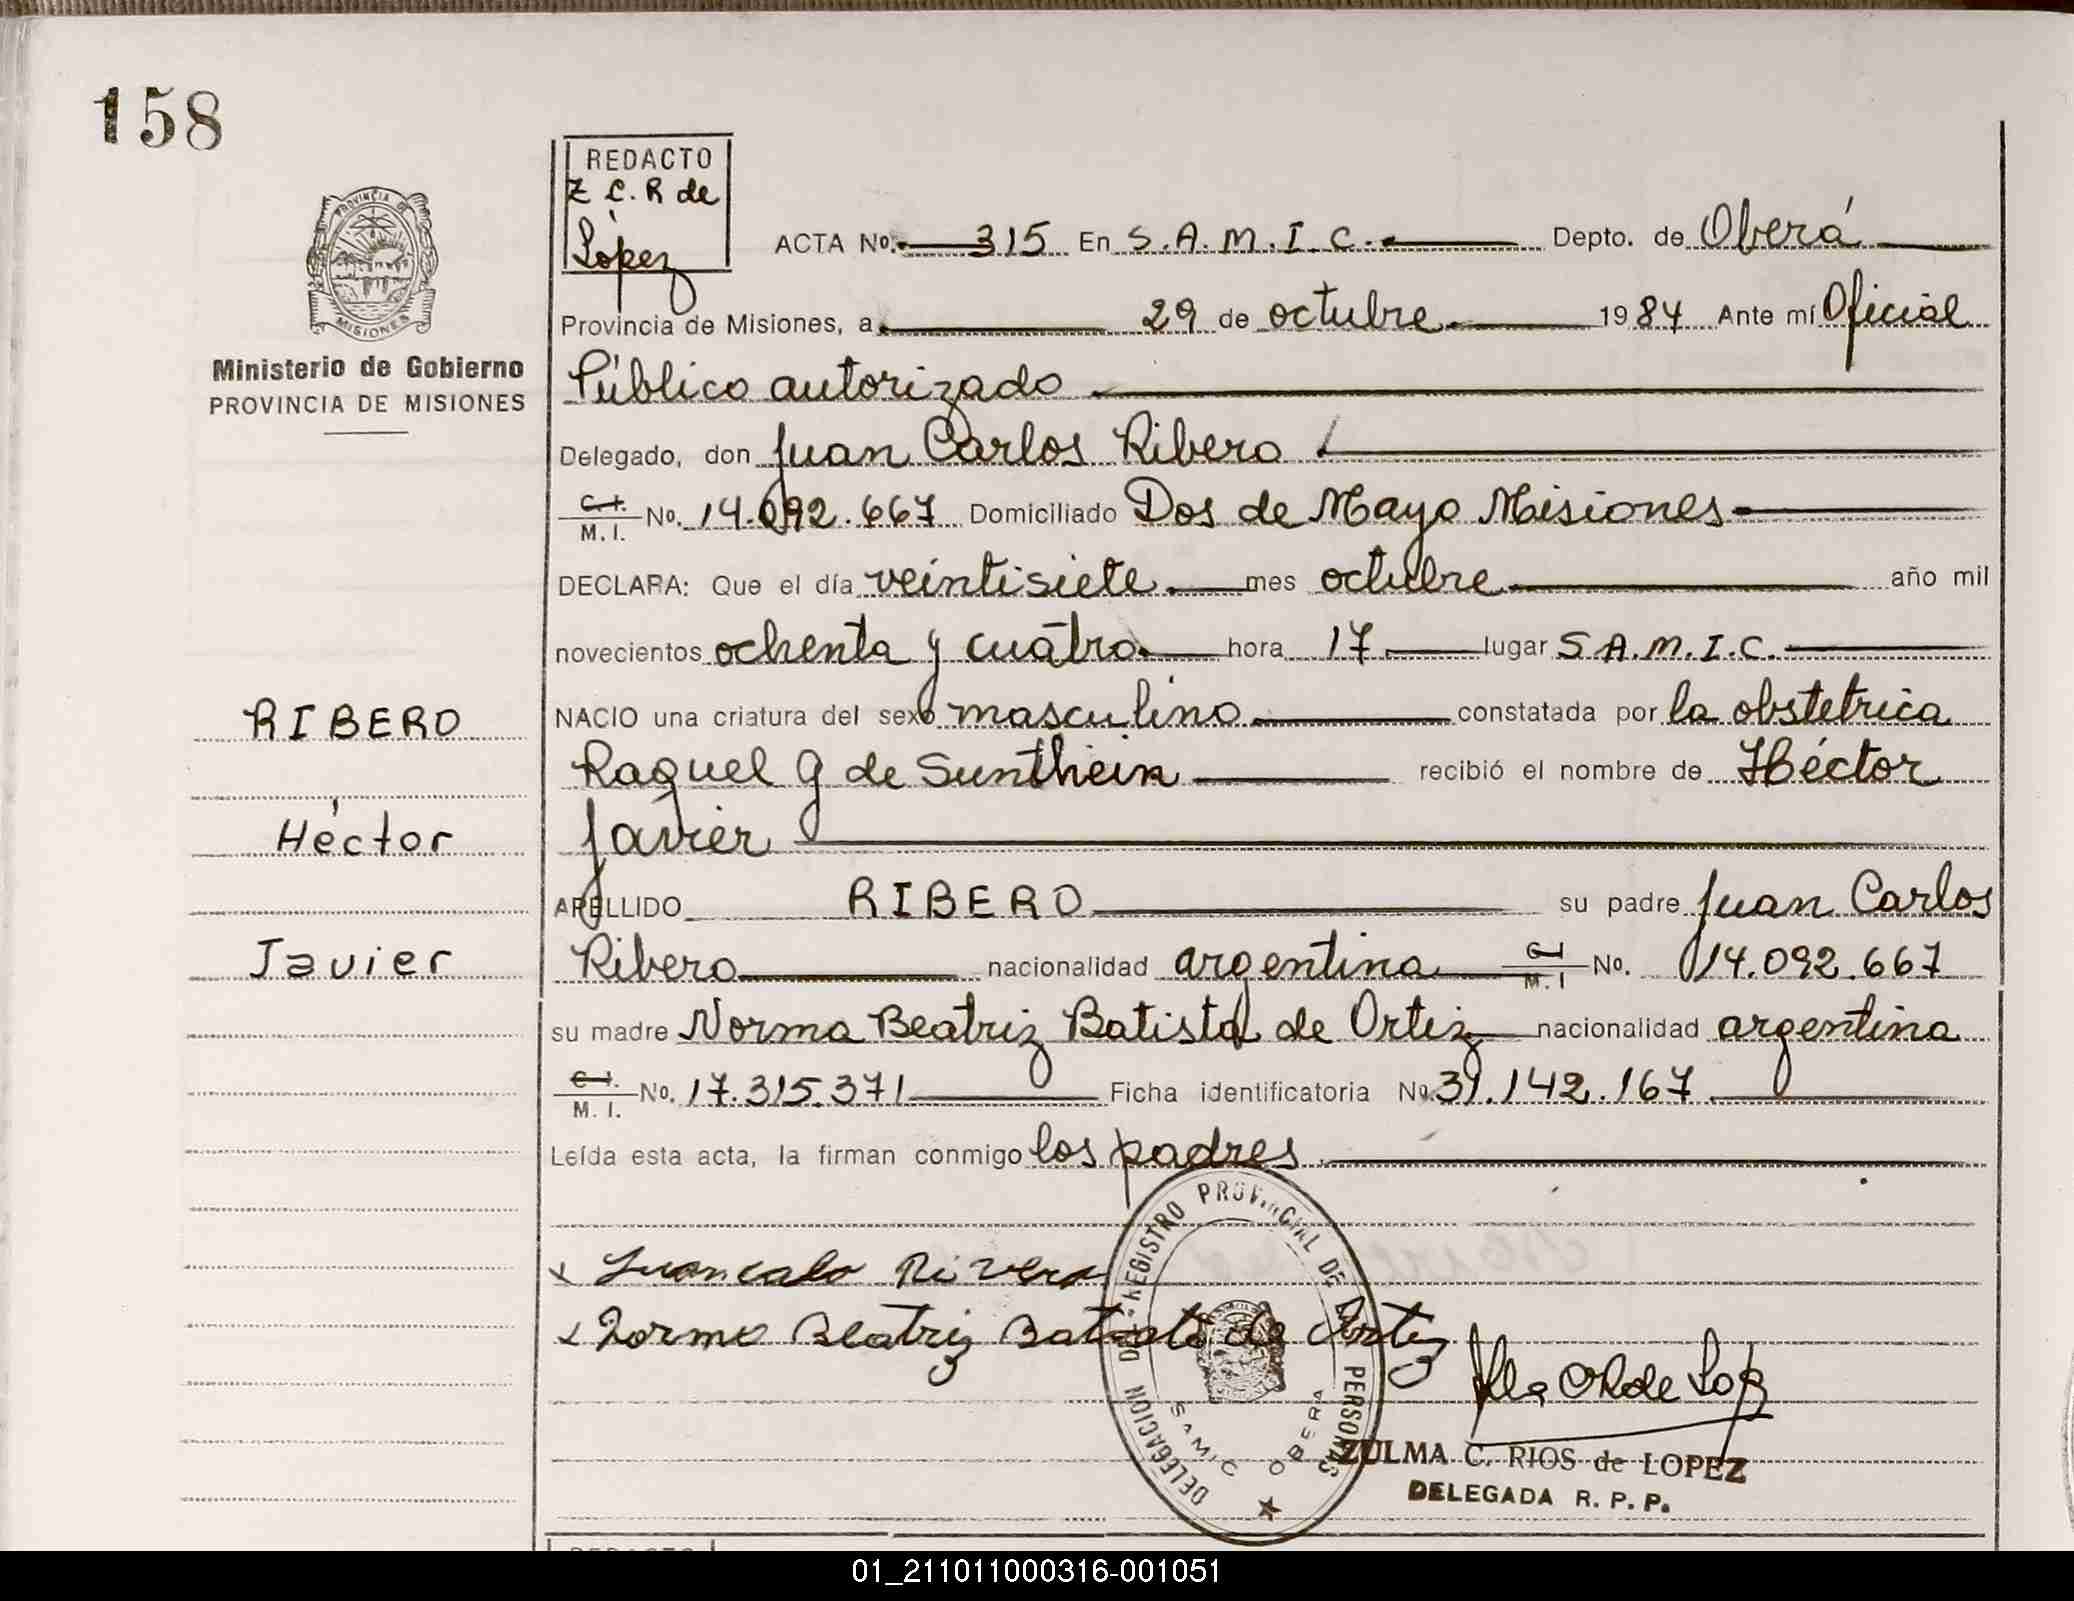 158
PROVINCIA DE
MISIONES
Ministerio de Gobierno
PROVINCIA DE MISIONES
RIBERO
Héctor
Javier
REDACTO
Z C. R de
López
ACTA No. 315 En S.A.M.I.C. Depto. de Oberá
Provincia de Misiones, a 29 de octubre 1984 Ante mí Oficial
Público autorizado
Delegado, don Juan Carlos Ribero
C.I. M.I. No. 14.092.667 Domiciliado Dos de Mayo Misiones
DECLARA: Que el día veintisiete mes octubre año mil
novecientos ochenta y cuatro hora 17 lugar S A.M.I.C.
NACIO una criatura del sexo masculino constatada por la obstetrica
Raquel G de Sunthein recibió el nombre de Héctor
Javier
APELLIDO RIBERO su padre Juan Carlos
Ribero nacionalidad argentina C.I. M.I No. 14.092.667
su madre Norma Beatriz Batista de Ortiz nacionalidad argentina
C.I. M.I. No. 17.315.371 Ficha identificatoria No. 31.142.167
Leída esta acta, la firman conmigo los padres
x Juancalo Rivero
x Norma Beatriz Batista de Ortiz
DELEGACION DEL REGISTRO PROVINCIAL DE PERSONAS
SAMIC OBERA
ZULMA C. RIOS de LOPEZ
DELEGADA R. P. P.
REDACTO
01_211011000316-001051